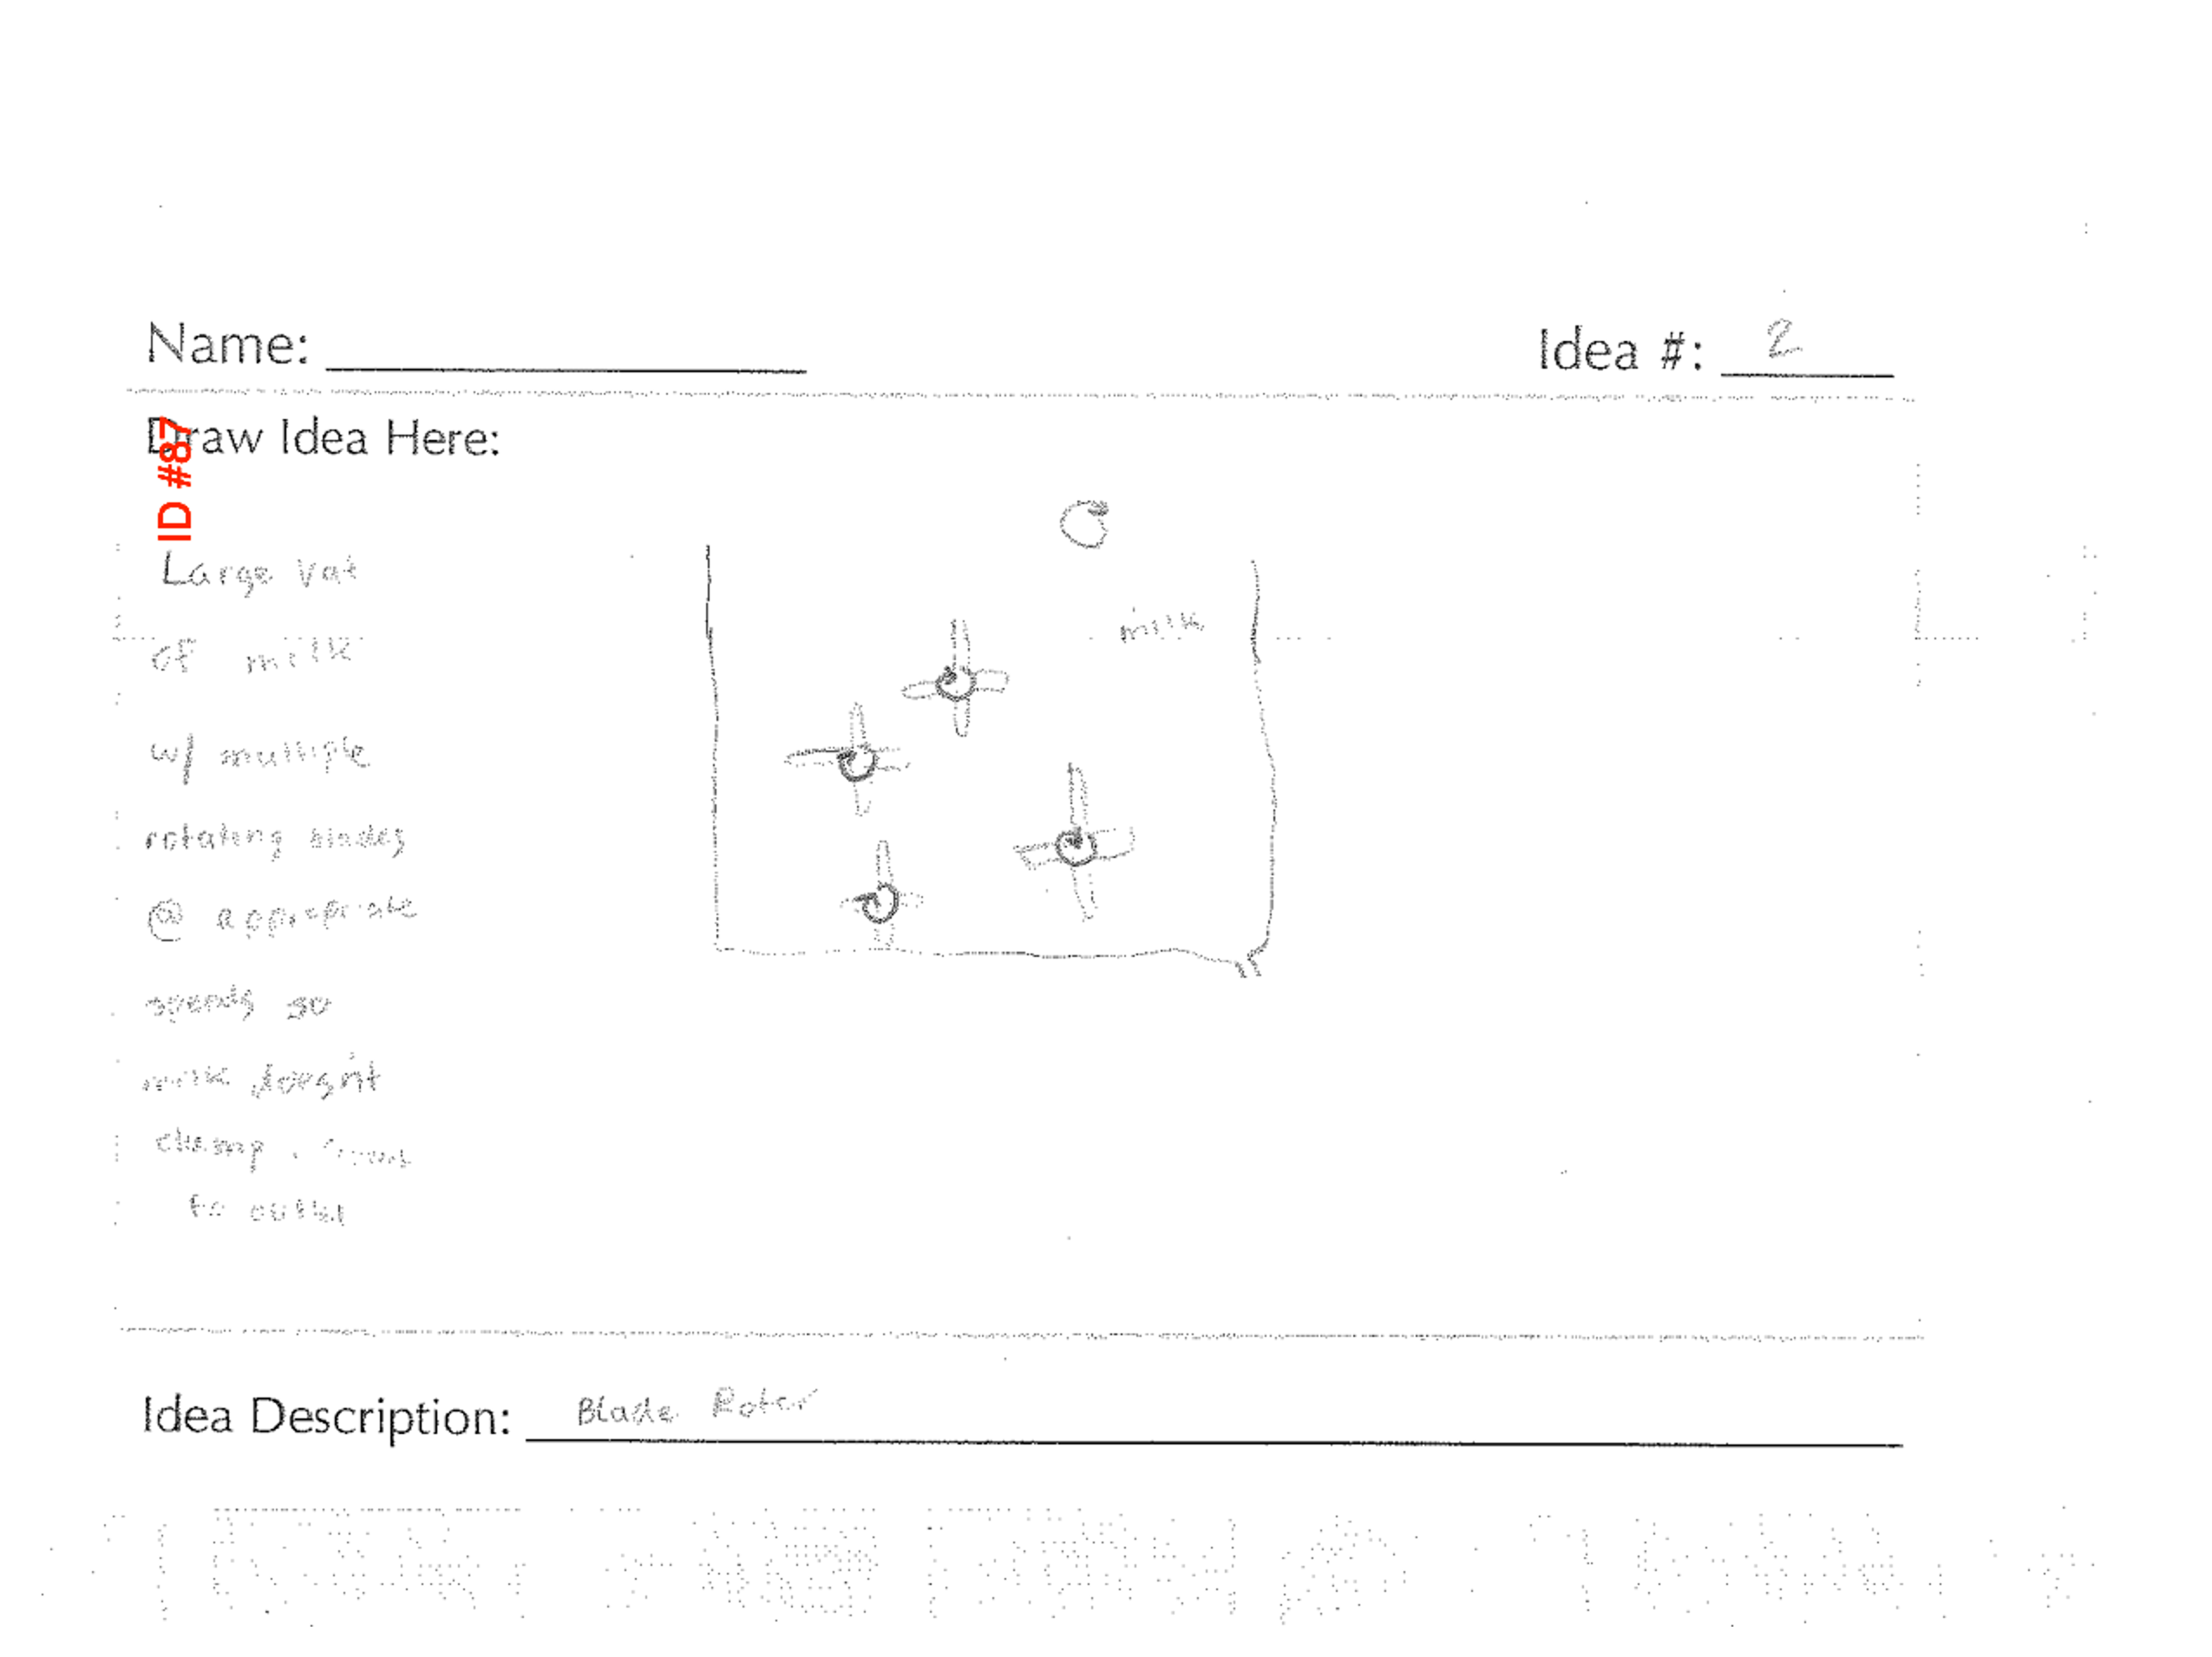 Name:
Idea #: 2
Draw Idea Here:
ID #87
Large vat
of milk
w/ multiple
rotating blades
@ appropriate
speeds so
milk doesn't
clump.
to outlet
milk
Idea Description: Blade Rotor